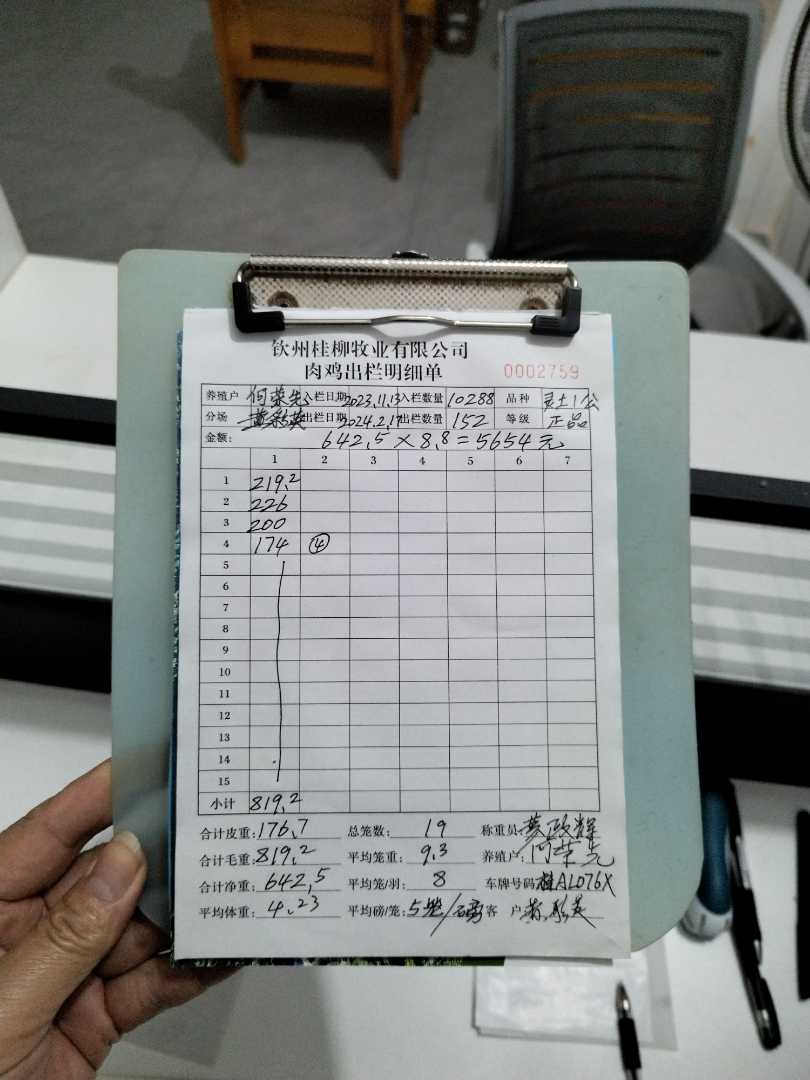 钦州桂柳牧业有限公司
肉鸡出栏明细单 0002759
养殖户 何荣先 入栏日期 2023.11.13 入栏数量 10288 品种 灵土1公
分场 黄彩英 出栏日期 2024.2.17 出栏数量 152 等级 正品
金额: 642.5×8.8=5654元
1 2 3 4 5 6 7
1 219.2
2 226
3 200
4 174 ④
5
6
7
8
9
10
11
12
13
14
15
小计 819.2
合计皮重: 176.7 总笼数: 19 称重员:
合计毛重: 819.2 平均笼重: 9.3 养殖户: 何荣先
合计净重: 642.5 平均笼/羽: 8 车牌号码 桂AL076X
平均体重: 4.23 平均磅/笼: 5 /磅 客户